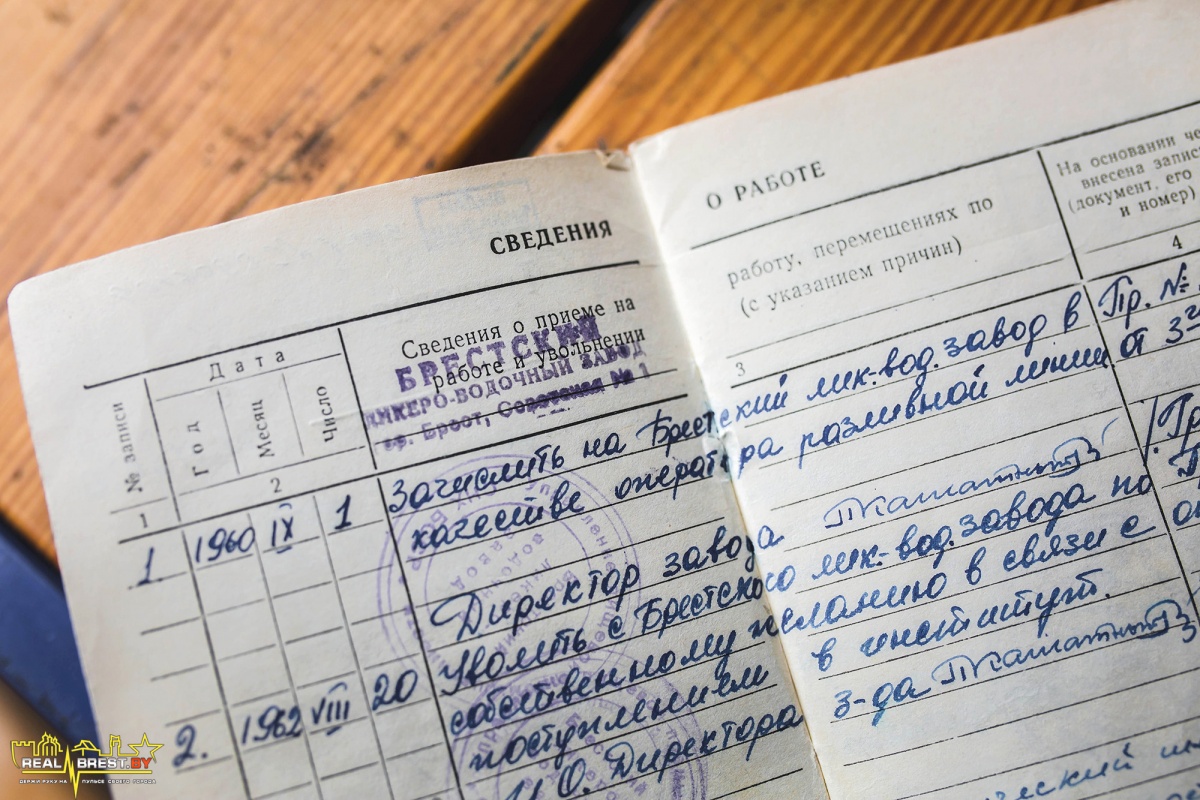 СВЕДЕНИЯ О РАБОТЕ
№ записи
Дата
Год
Месяц
Число
Сведения о приеме на работу, перемещениях по
работе и увольнении (с указанием причин)
На основании че
внесена запис
(документ, его
и номер)
1
2
3
4
БРЕСТСКИЙ
ЛИКЕРО-ВОДОЧНЫЙ ЗАВОД
гр. Брест, Советская № 1
1 1960 IX 1 Зачислить на Брестский лик.-вод. завод в Пр. №
качестве оператора разливной линии от 3-
Директор завода
2. 1962 VIII 20 Уволить с Брестского лик-вод. завода по
собственному желанию в связи с
поступлением в институт.
И.О. Директора з-да
REAL BREST.BY
ДЕРЖИ РУКУ НА ПУЛЬСЕ СВОЕГО ГОРОДА